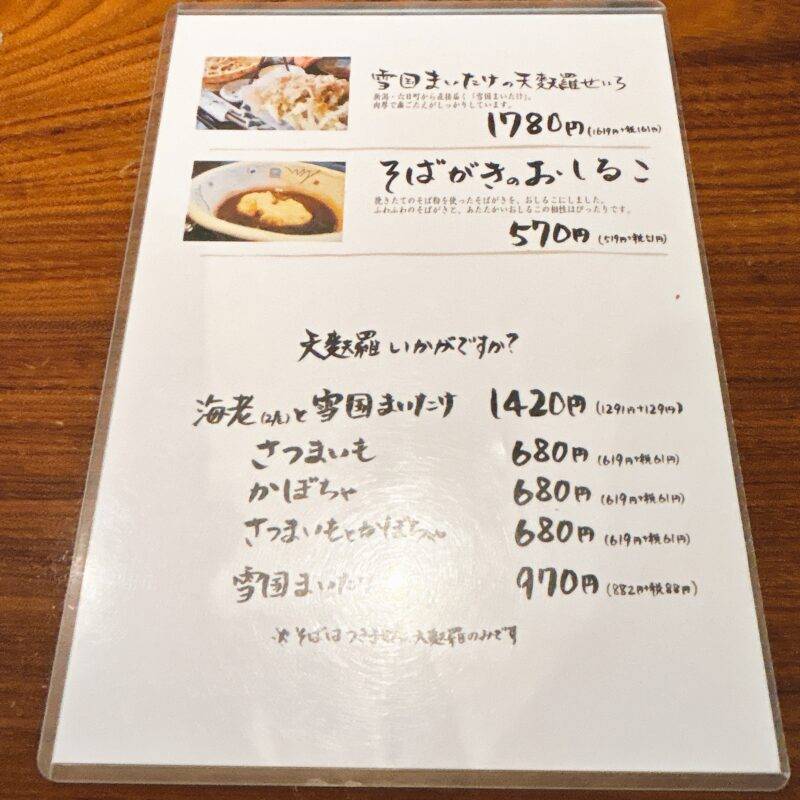 雪国まいたけの天麩羅せいろ
新潟・六日町から直接届く「雪国まいたけ」。
肉厚で歯ごたえがしっかりしています。
1780円(1619円+税161円)
そばがきのおしるこ
挽きたてのそば粉を使ったそばがきを、おしるこにしました。
ふわふわのそばがきと、あたたかいおしるこの相性はぴったりです。
570円(519円+税51円)
天麩羅いかがですか?
海老(2尾)と雪国まいたけ 1420円(1291円+129円)
さつまいも 680円(619円+税61円)
かぼちゃ 680円(619円+税61円)
さつまいもとかぼちゃ 680円(619円+税61円)
雪国まいたけ 970円(882円+税88円)
※そばはつきません。天麩羅のみです